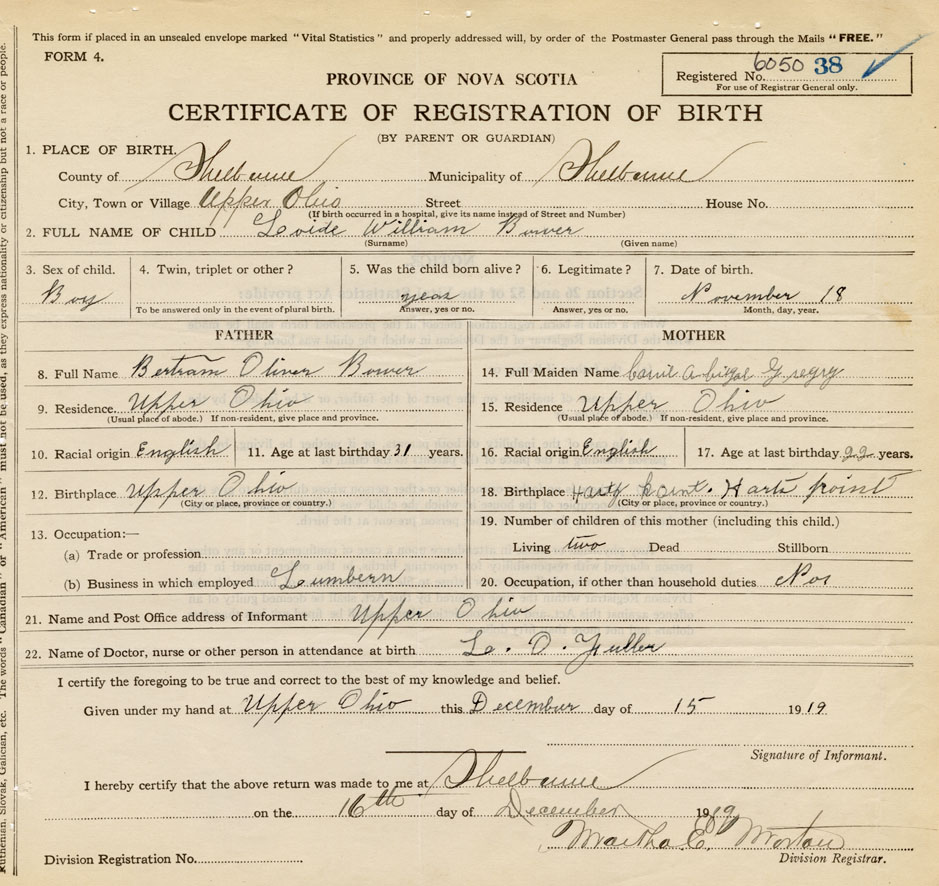 This form if placed in an unsealed envelope marked "Vital Statistics" and properly addressed will, by order of the Postmaster General pass through the Mails "FREE."
FORM 4.
Registered No. 6050 38
For use of Registrar General only.
PROVINCE OF NOVA SCOTIA
CERTIFICATE OF REGISTRATION OF BIRTH
(BY PARENT OR GUARDIAN)
1. PLACE OF BIRTH.
County of Shelburne Municipality of Shelburne
City, Town or Village Upper Ohio Street House No.
(If birth occurred in a hospital, give its name instead of Street and Number)
2. FULL NAME OF CHILD Loide William Bower
(Surname) (Given name)
3. Sex of child. 4. Twin, triplet or other? 5. Was the child born alive? 6. Legitimate? 7. Date of birth.
Boy yeas November 18
To be answered only in the event of plural birth. Answer, yes or no. Answer, yes or no. Month, day, year.
FATHER MOTHER
8. Full Name Bertram Oliver Bower
14. Full Maiden Name
9. Residence. Upper Ohio
15. Residence Upper Ohio
(Usual place of abode.) If non-resident, give place and province.
(Usual place of abode.) If non-resident, give place and province.
10. Racial origin English 11. Age at last birthday 31 years.
16. Racial origin English 17. Age at last birthday 22 years.
12. Birthplace Upper Ohio
18. Birthplace point. Harts point
(City or place, province or country.)
(City or place, province or country.)
13. Occupation:—
19. Number of children of this mother (including this child.)
(a) Trade or profession
Living two Dead Stillborn
(b) Business in which employed Loumbern
20. Occupation, if other than household duties
21. Name and Post Office address of Informant Upper Ohio
22. Name of Doctor, nurse or other person in attendance at birth Lo. O. Fuller
I certify the foregoing to be true and correct to the best of my knowledge and belief.
Given under my hand at Upper Ohio this December day of 15 1919
Signature of Informant.
I hereby certify that the above return was made to me at Shelburne
on the 16th day of December 1919
Martha E. Morton
Division Registration No. Division Registrar.
Ruthenian, Slovak, Galician, etc. The words "Canadian" or "American" must not be used, as they express nationality or citizenship but not a race or people.